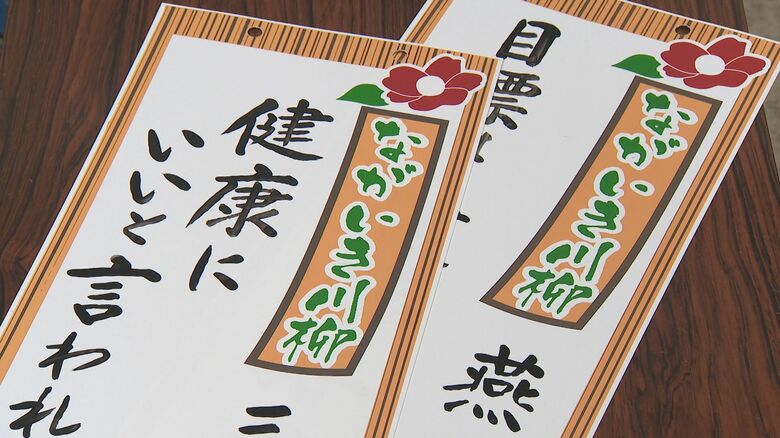 ながいき川柳
健康に
いいと言われ
三
ながいき川柳
目標
燕